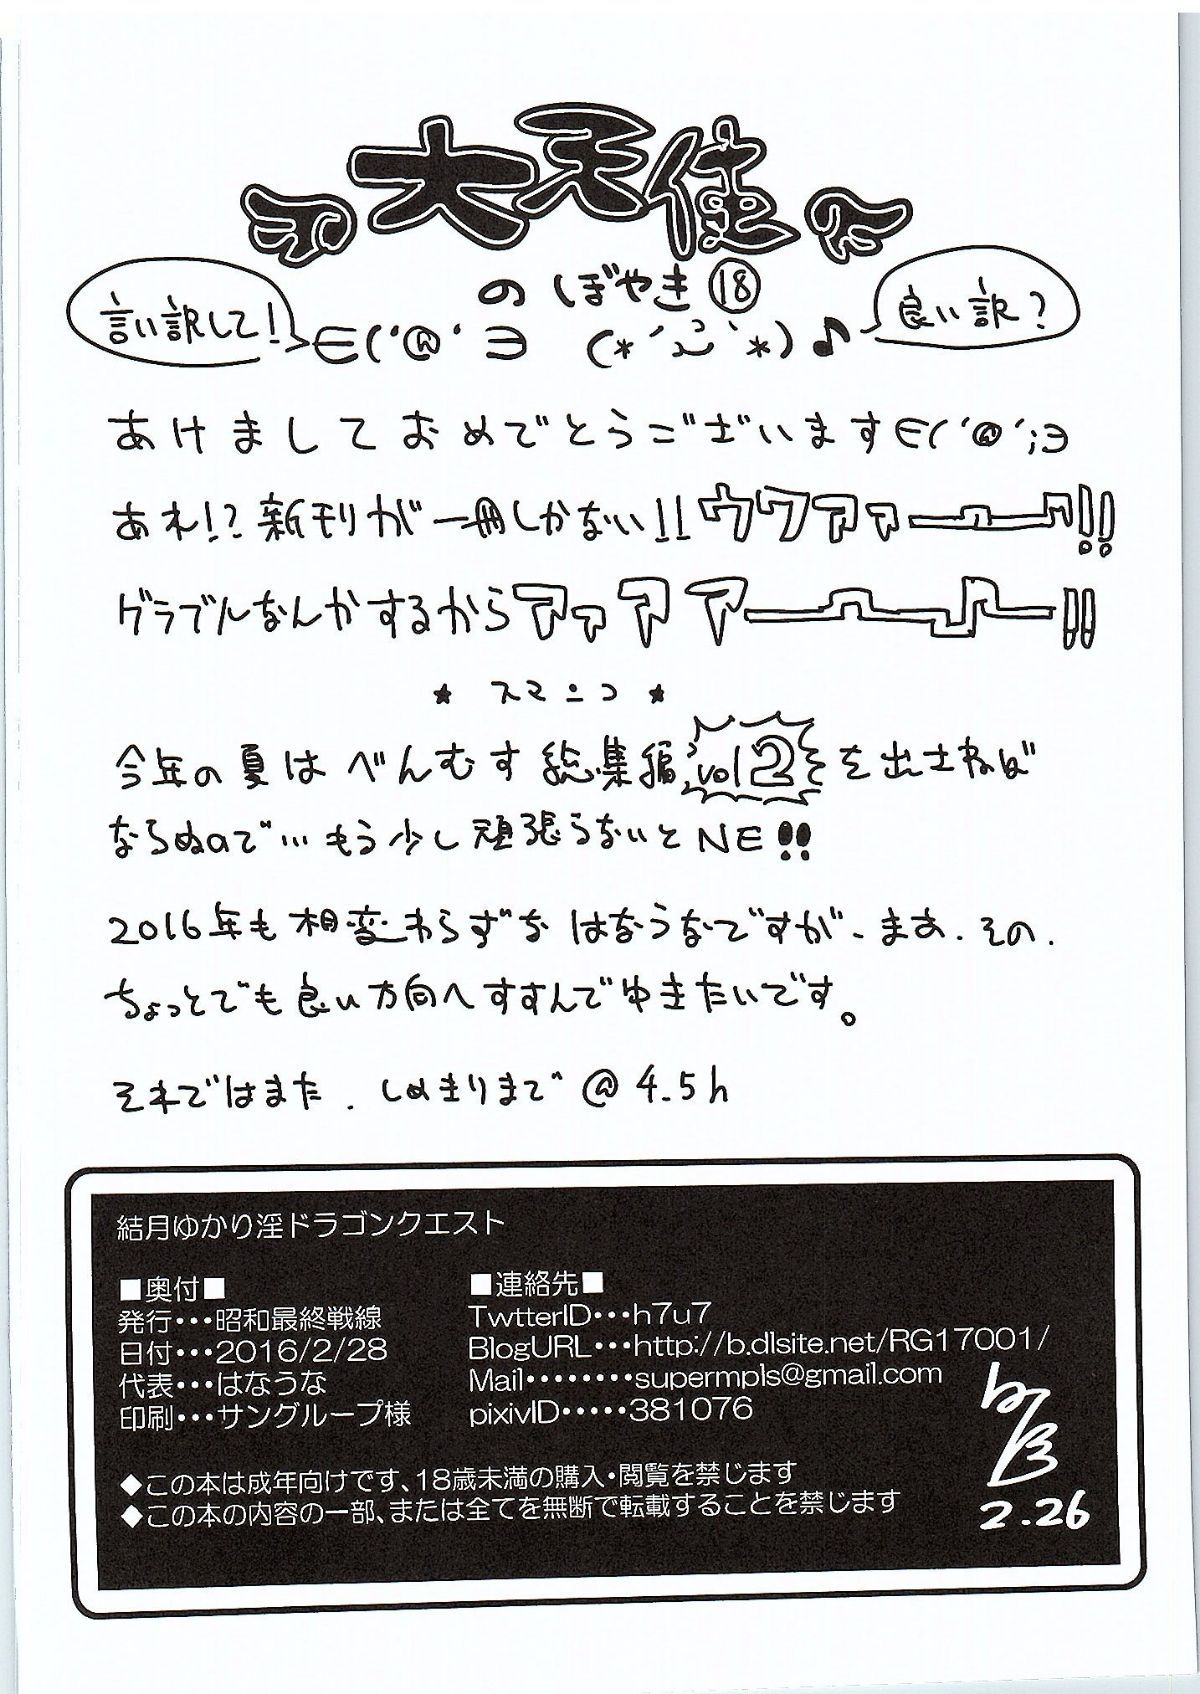 大天使
のぼやき⑱
言い訳して!
∈('@'∋ (*´ω`*)♪
良い訳?
あけましておめでとうございます∈('@';∋
あれ!?新刊が一冊しかない!!ウワアァーーー!!
グラブルなんかするからアァアアーーー!!
★ スマニコ ★
今年の夏はべんむす総集編vol2を出さねば
ならぬので…もう少し頑張らないとNE!!
2016年も相変わらずなはなうなですが、まあ、その、
ちょっとでも良い方向へすすんでゆきたいです。
それではまた、しめきりまで@4.5h
結月ゆかり淫ドラゴンクエスト
■奥付■
発行・・・昭和最終戦線
日付・・・2016/2/28
代表・・・はなうな
印刷・・・サングループ様
■連絡先■
TwtterID・・・h7u7
BlogURL・・・http://b.dlsite.net/RG17001/
Mail・・・・・・・・supermpls@gmail.com
pixivID・・・・・381076
◆この本は成年向けです、18歳未満の購入・閲覧を禁じます
◆この本の内容の一部、または全てを無断で転載することを禁じます
2.26